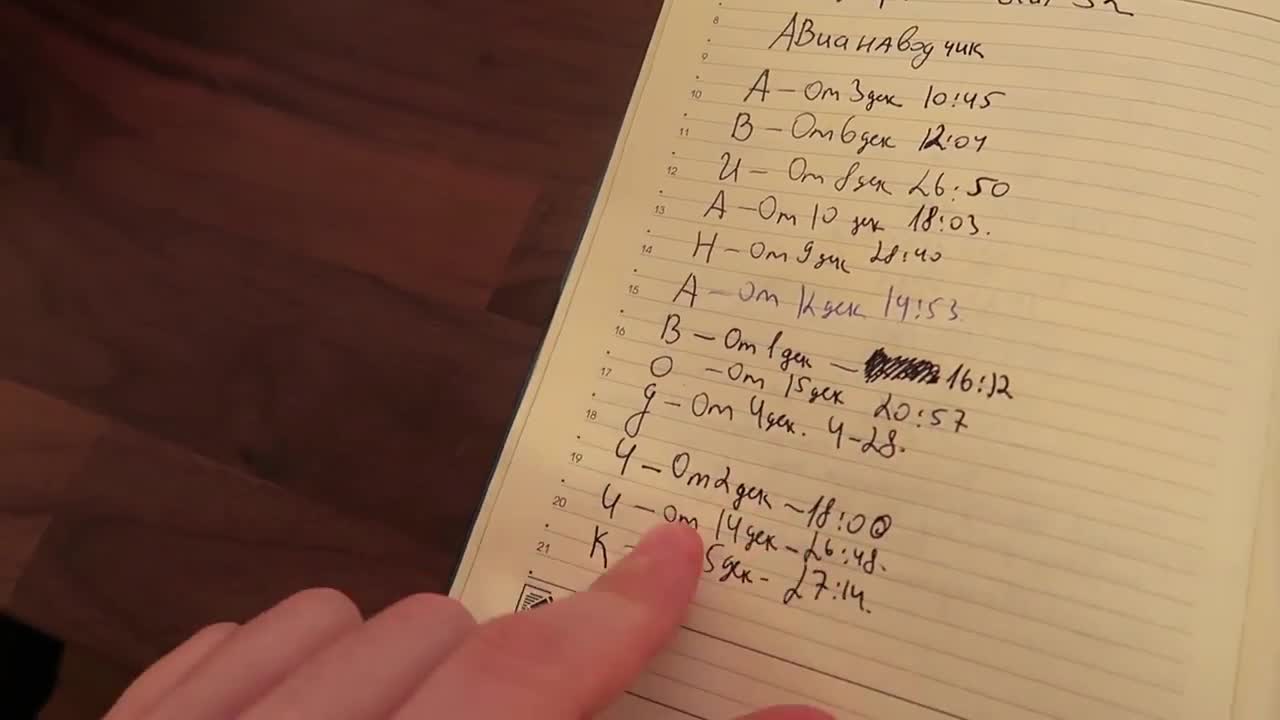 8
АВианавод чик
9
10
А – От 3 дек 10:45
11
В – От 6 дек 12:04
12
И – От 8 дек 26:50
13
А – От 10 дек 18:03.
14
Н – От 9 дек 28:40
15
А – От дек 14:53
16
В – От 1 дек – 16:12
17
О – От 15 дек 20:57
18
д – От 4 дек. 4-28.
19
Ч – От 2 дек – 18:00
20
И – От 14 дек – 26:48.
21
К – 5 дек – 27:14.